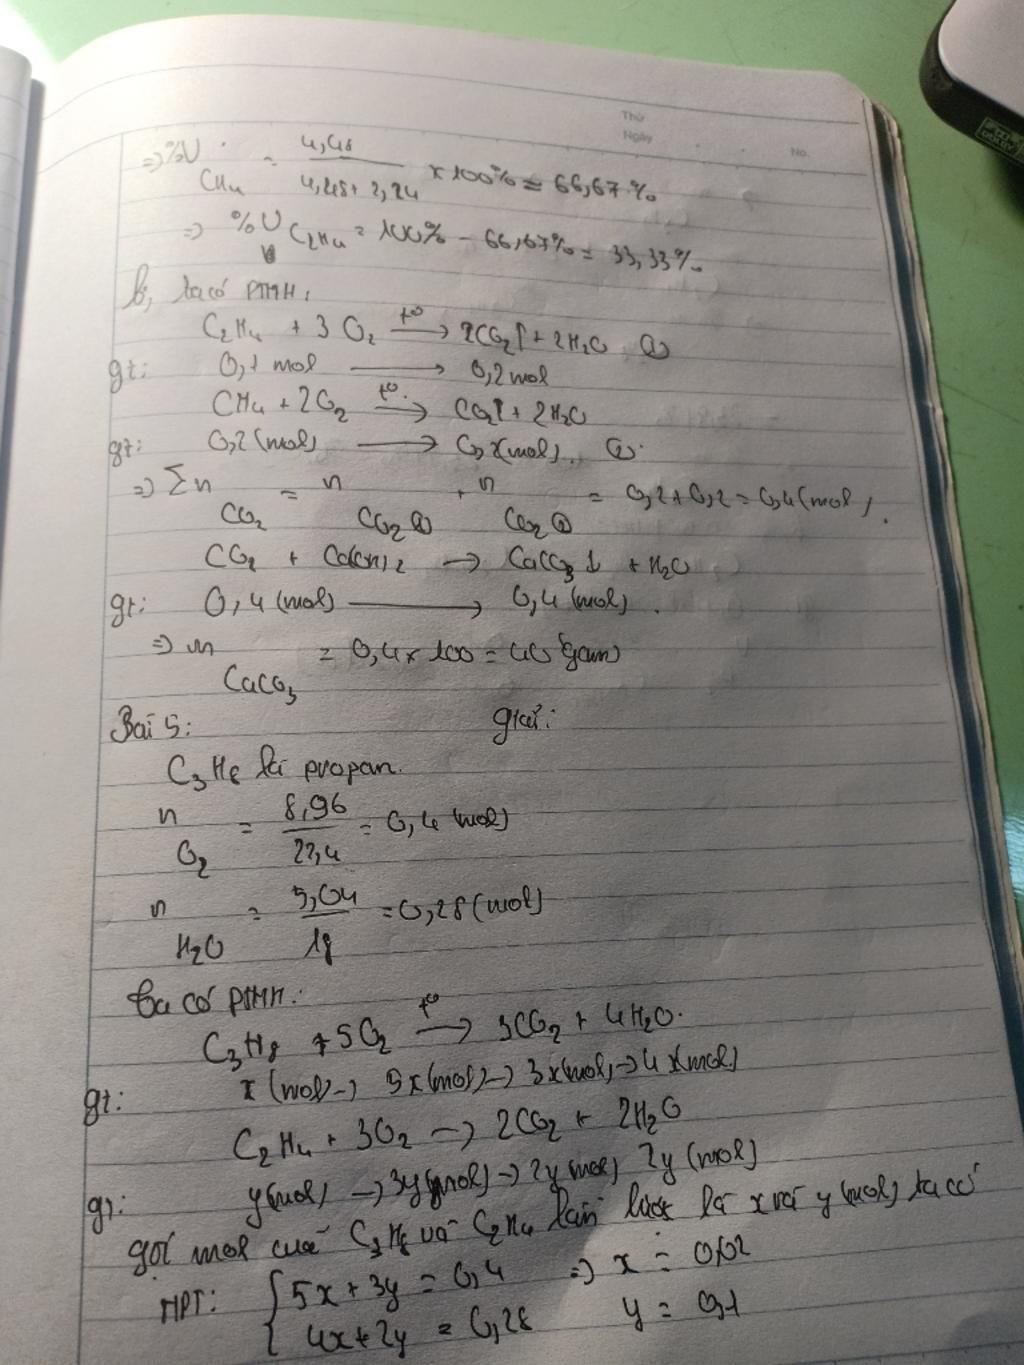 Thứ
Ngày
No.
=> %V CH4 = 4,48 / (4,48 + 2,24) x 100% = 66,67%
=> %V C2H4 = 100% - 66,67% = 33,33%
b, ta có PTHH:
C2H4 + 3O2 t° → 2CO2↑ + 2H2O (1)
gt: 0,1 mol → 0,2 mol
CH4 + 2O2 t° → CO2↑ + 2H2O
gt: 0,2 (mol) → 0,2 (mol).
=> Σn CO2 = n CO2 + n CO2 = 0,2 + 0,2 = 0,4 (mol).
CO2 + Ca(OH)2 → CaCO3↓ + H2O
gt: 0,4 (mol) → 0,4 (mol).
=> m CaCO3 = 0,4 x 100 = 40 (gam)
Bài 5: giải:
C3H8 là propan.
n O2 = 8,96 / 22,4 = 0,4 (mol)
n H2O = 5,04 / 18 = 0,28 (mol)
ta có PTHH:
C3H8 + 5O2 t° → 3CO2 + 4H2O.
gt: x (mol) → 5x (mol) → 3x (mol) → 4x (mol)
C2H4 + 3O2 → 2CO2 + 2H2O
gt: y (mol) → 3y (mol) → 2y (mol) 2y (mol)
gọi mol của C3H8 và C2H4 lần lượt là x và y (mol) ta có
HPT: { 5x + 3y = 0,4 => x = 0,02
4x + 2y = 0,28 y = 0,1